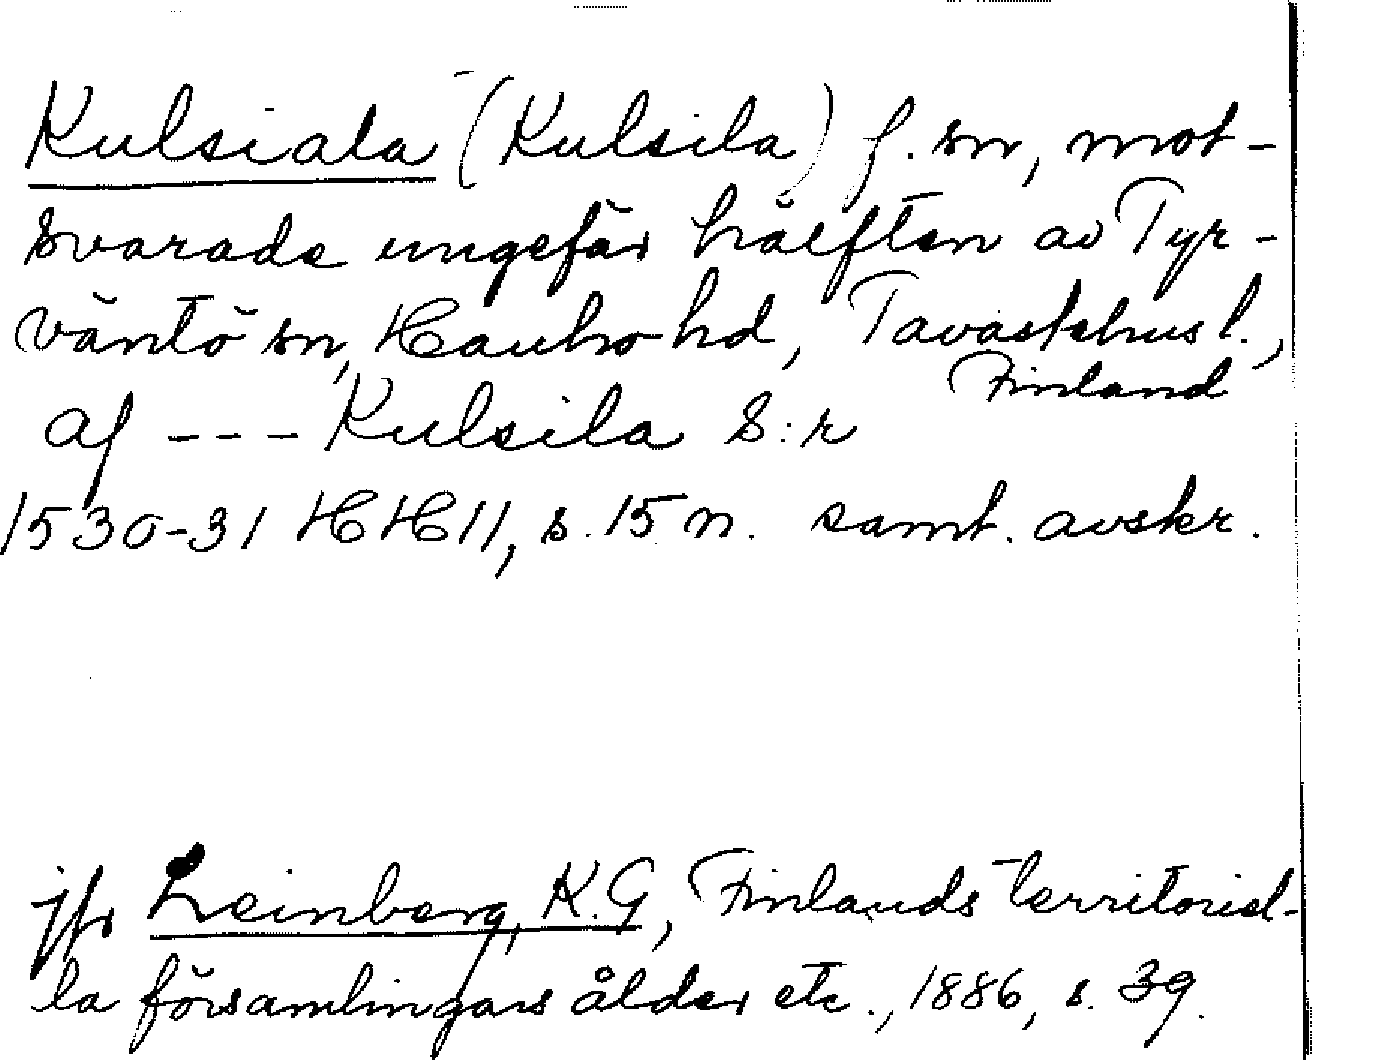 Kulsiala (Kulsila) f. sn, mot-
svarade ungefär hälften av Tyr-
väntö sn, Hauho hd, Tavastehus l.,
Finland
af --- Kulsila S:r
1530-31 HH 11, s. 15 n. samt. avskr.
jfr Leinberg, K.G, Finlands territoriel-
la församlingars ålder etc., 1886, s. 39.